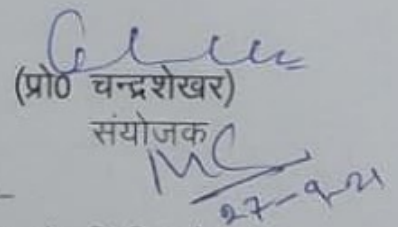 (प्रो0 चन्द्रशेखर)
संयोजक
27-9-21